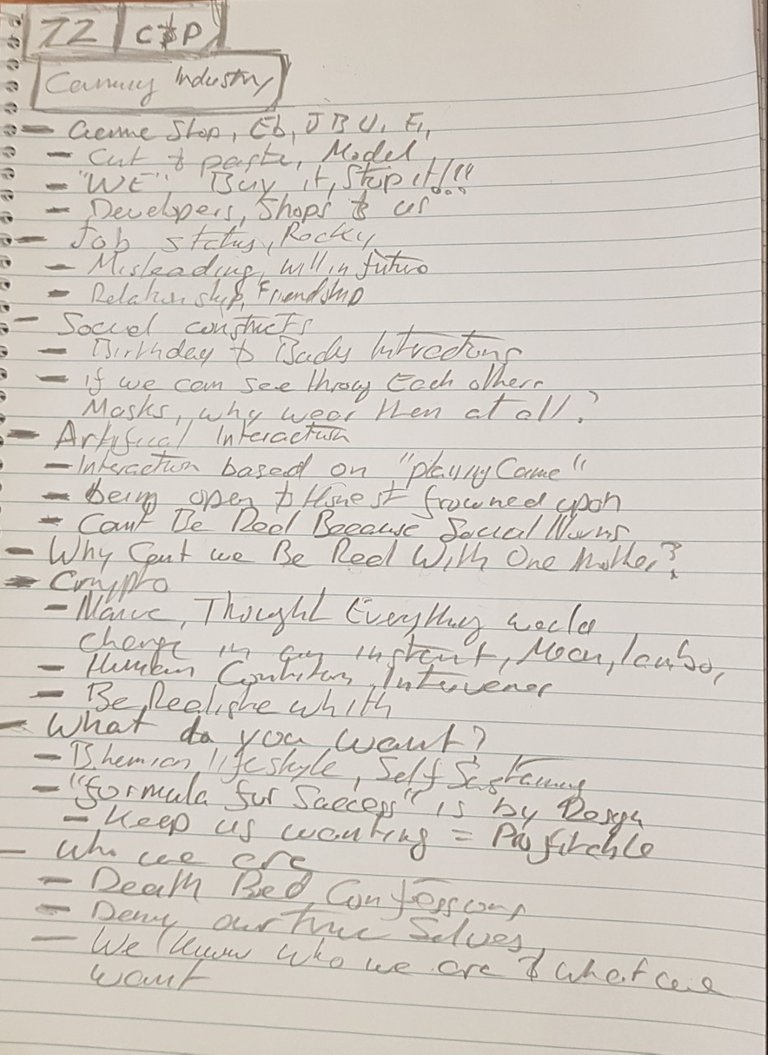 72 C&P
Industry
- Game Stop, Eb, J B U, E,,
- Cut & paste, Model
- "WE" Buy it, Stop it!!!
- Developers, Shops & us
- Job status, Rocky
- Misleading, will in future
- Relationship, Friendship
- Social constructs
- Birthday & Interactions
- if we can see throug Each others
Masks, why wear then at all?
- Artifical Interaction
- Interaction based on "playing Game"
- being open & Honest frowned upon
- Cant Be Reel Because Social Norms
- Why Cant we Be Reel With One Another?
- Crypto
- Naive, Thought Everything would
change in an instant, Moon, lambo,
- Human Intervener
- Be Realistic
- What do you want?
- Bhemian lifestyle, Self Sustaining
- "formula for Success" is by Design
- Keep us wanting = Profitable
- Who we are
- Death Bed, Confessions
- Deny our True Selves,
- We Know Who we are & what we
want